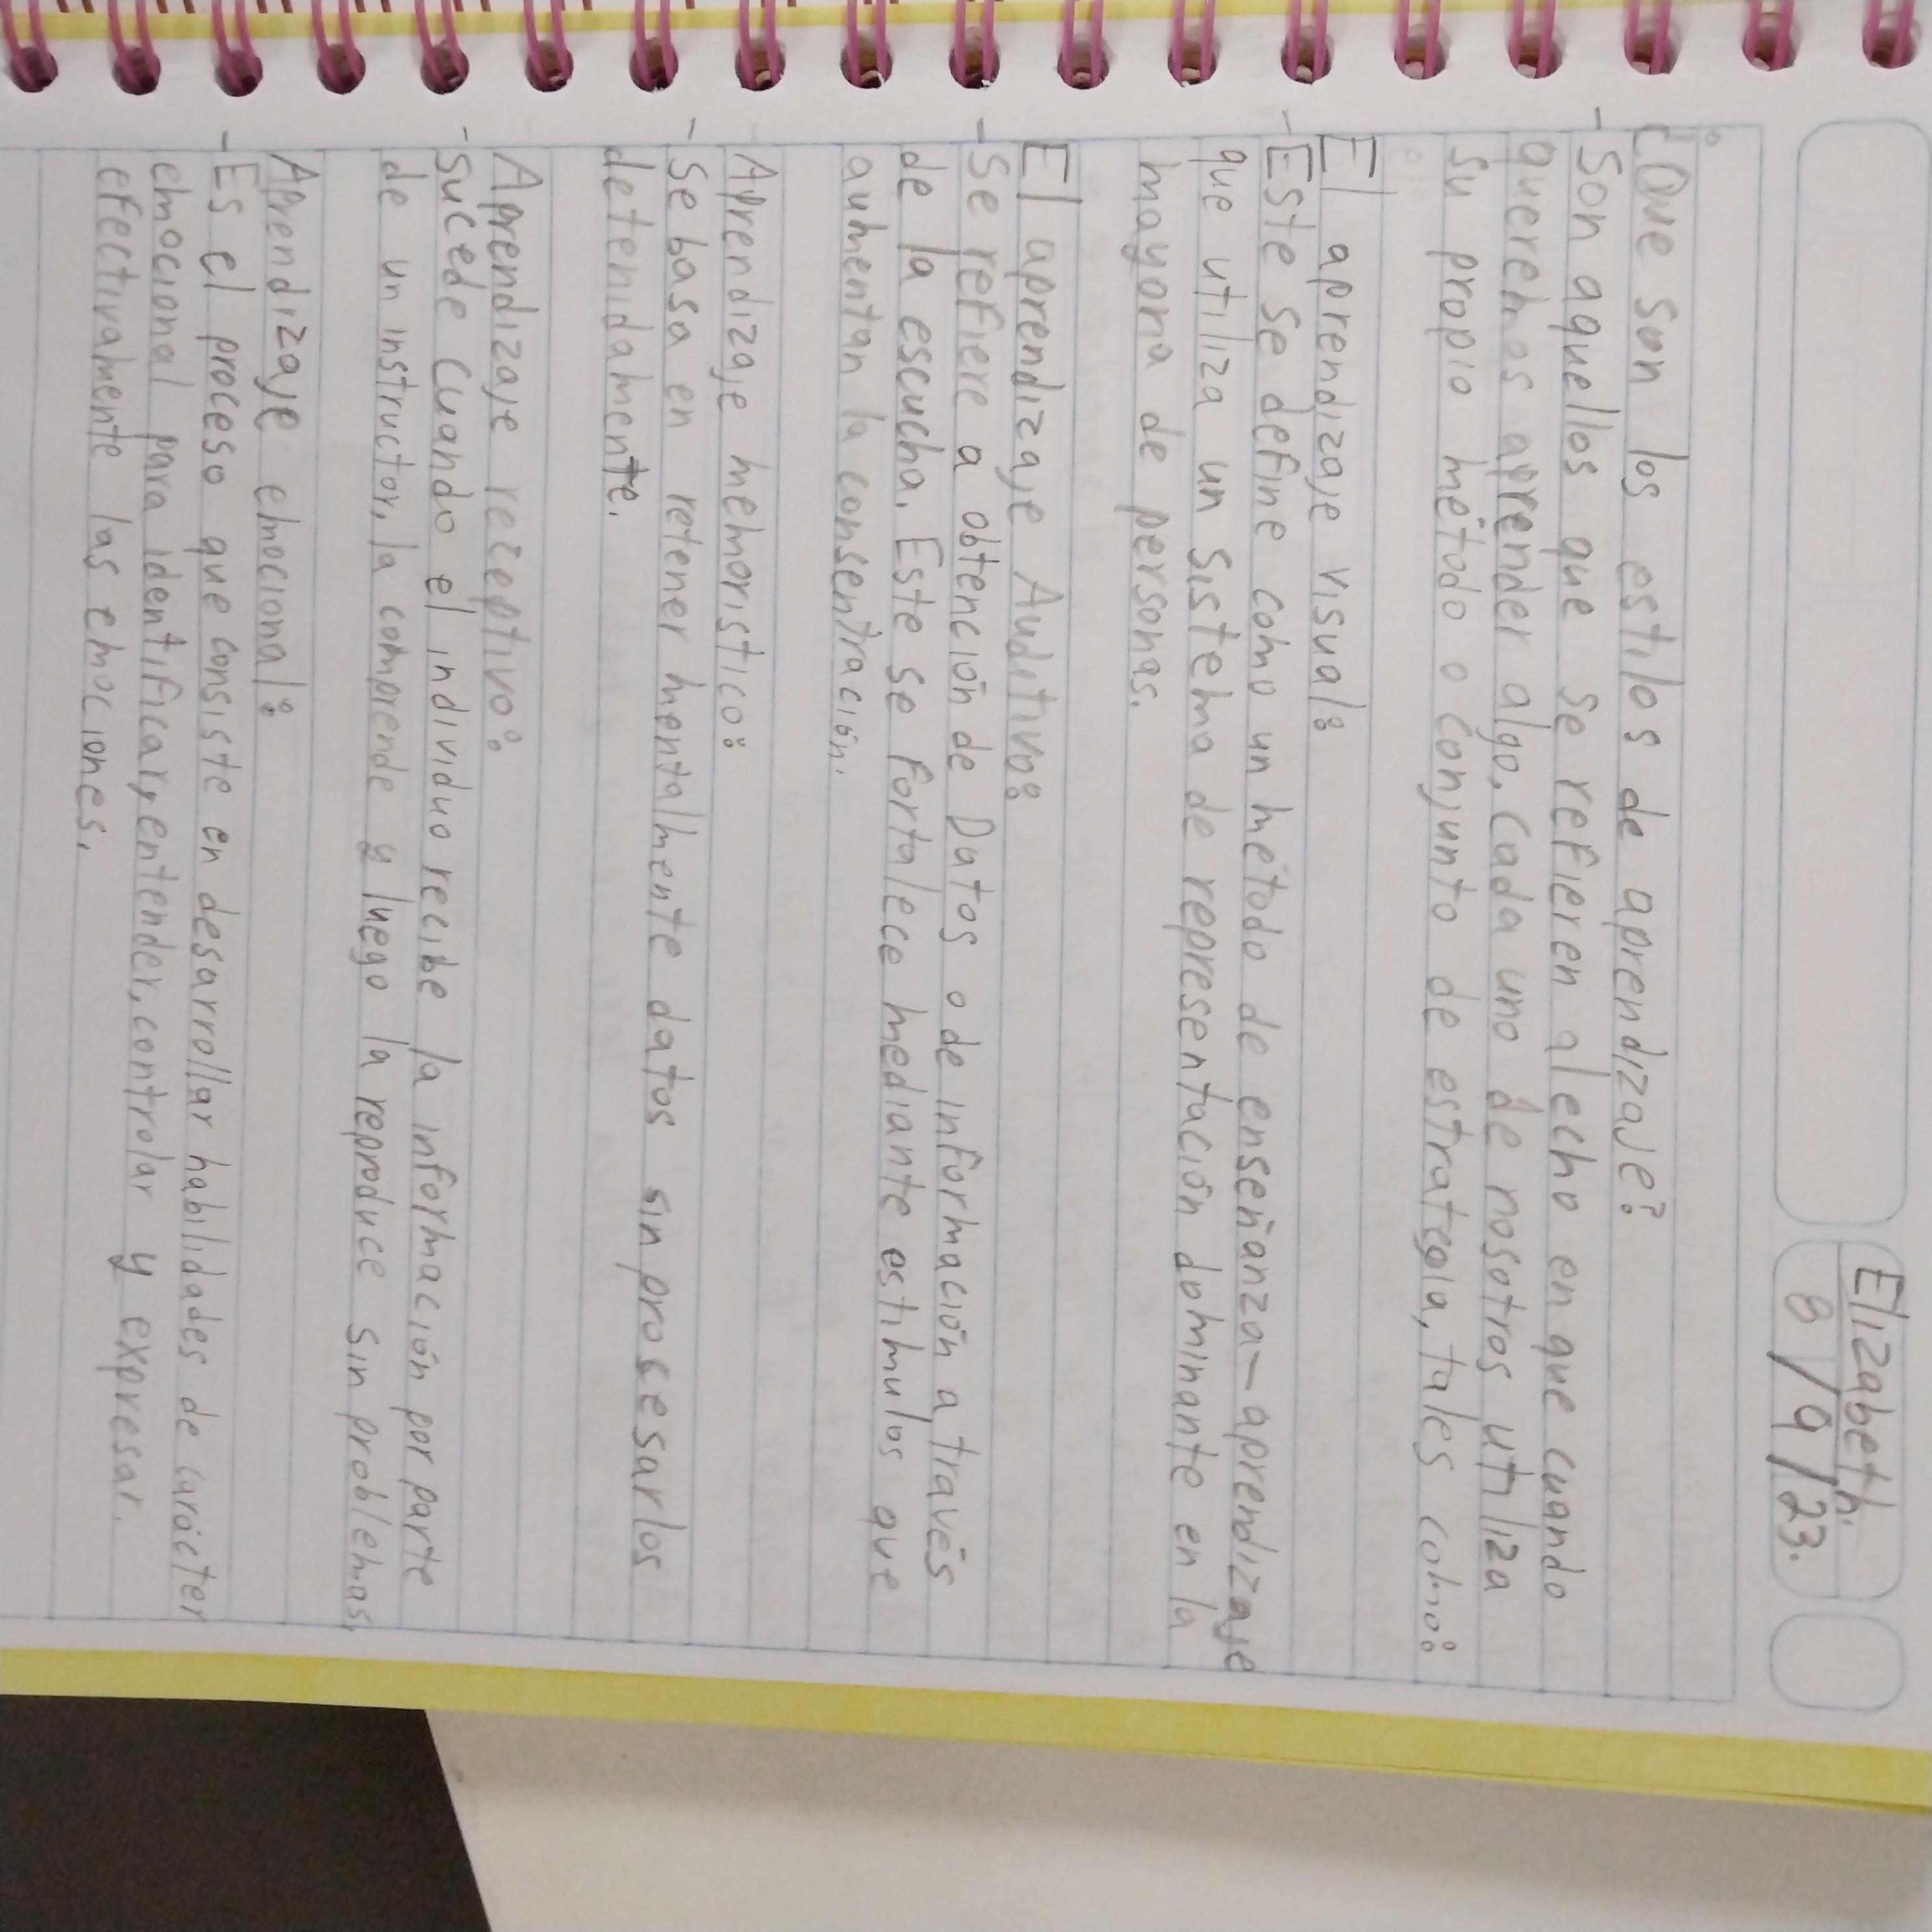 Elizabeth.
8/9/23.
¿Que son los estilos de aprendizaje?
- Son aquellos que se refieren al echo en que cuando
queremos aprender algo, cada uno de nosotros utiliza
su propio método o conjunto de estrategia, tales como:
El aprendizaje visual:
- Este se define como un método de enseñanza-aprendizaje
que utiliza un sistema de representación dominante en la
mayoria de personas.
El aprendizaje Auditivo:
- Se refiere a obtención de Datos o de información a través
de la escucha. Este se fortalece mediante estimulos que
aumentan la consentración.
Aprendizaje memoristico:
- Se basa en retener mentalmente datos sin prosesarlos
detenidamente.
Aprendizaje receptivo:
- Sucede cuando el individuo recibe la información por parte
de un instructor, la comprende y luego la reproduce sin problemas
Aprendizaje emocional:
- Es el proceso que consiste en desarrollar habilidades de carácter
emocional para identificar, entender, controlar y expresar.
efectivamente las emociones.